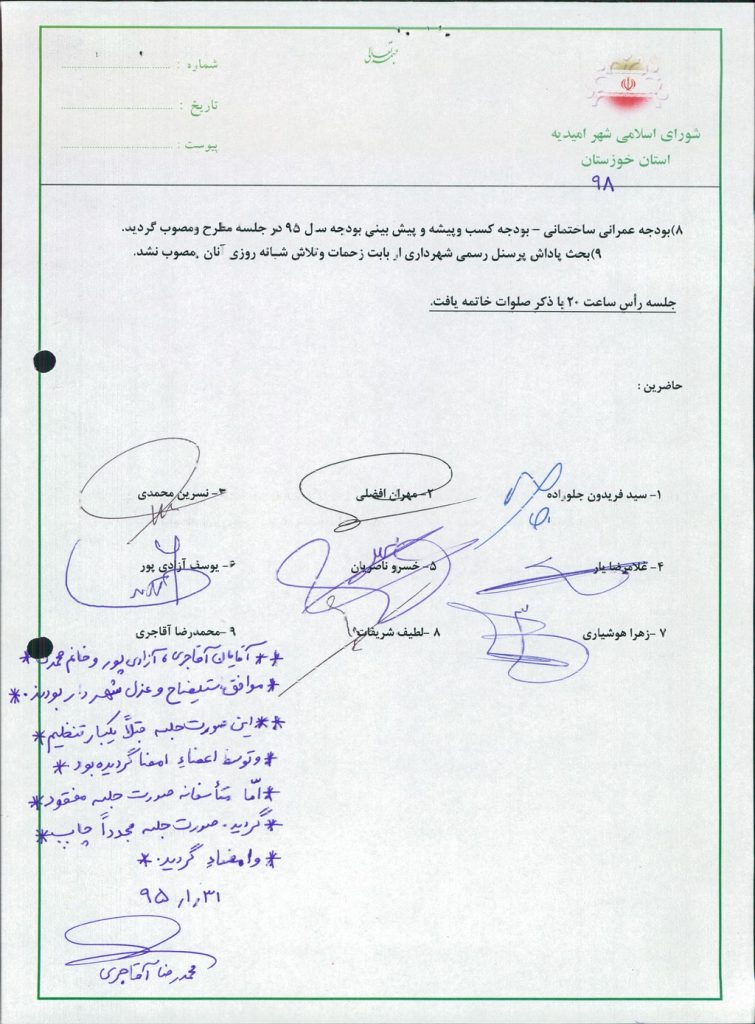 بسمه تعالی
شماره :
تاریخ :
پیوست :
شورای اسلامی شهر امیدیه
استان خوزستان
۹۸
۸)بودجه عمرانی ساختمانی – بودجه کسب وپیشه و پیش بینی بودجه سال ۹۵ در جلسه مطرح ومصوب گردید.
۹)بحث پاداش پرسنل رسمی شهرداری از بابت زحمات وتلاش شبانه روزی آنان ,مصوب نشد.
جلسه رأس ساعت ۲۰ با ذکر صلوات خاتمه یافت.
حاضرین :
۱- سید فریدون جلوزاده ۲- مهران افضلی ۳- نسرین محمدی
۴- غلامرضا یار ۵- خسرو ناصریان ۶- یوسف آزادی پور
۷ -زهرا هوشیاری ۸ -لطیف شریفات ۹ -محمدرضا آقاجری
** آقایان آقاجری، آزادی پور و خانم محمدی *
* موافق استیضاح و عزل شهردار بودند. *
** این صورت جلسه قبلاً یکبار تنظیم *
* و توسط اعضاء امضا گردیده بود *
* امّا متأسفانه صورت جلسه مفقود *
* گردید. صورت جلسه مجدداً چاپ *
* و امضاء گردید. *
محمدرضا آقاجری